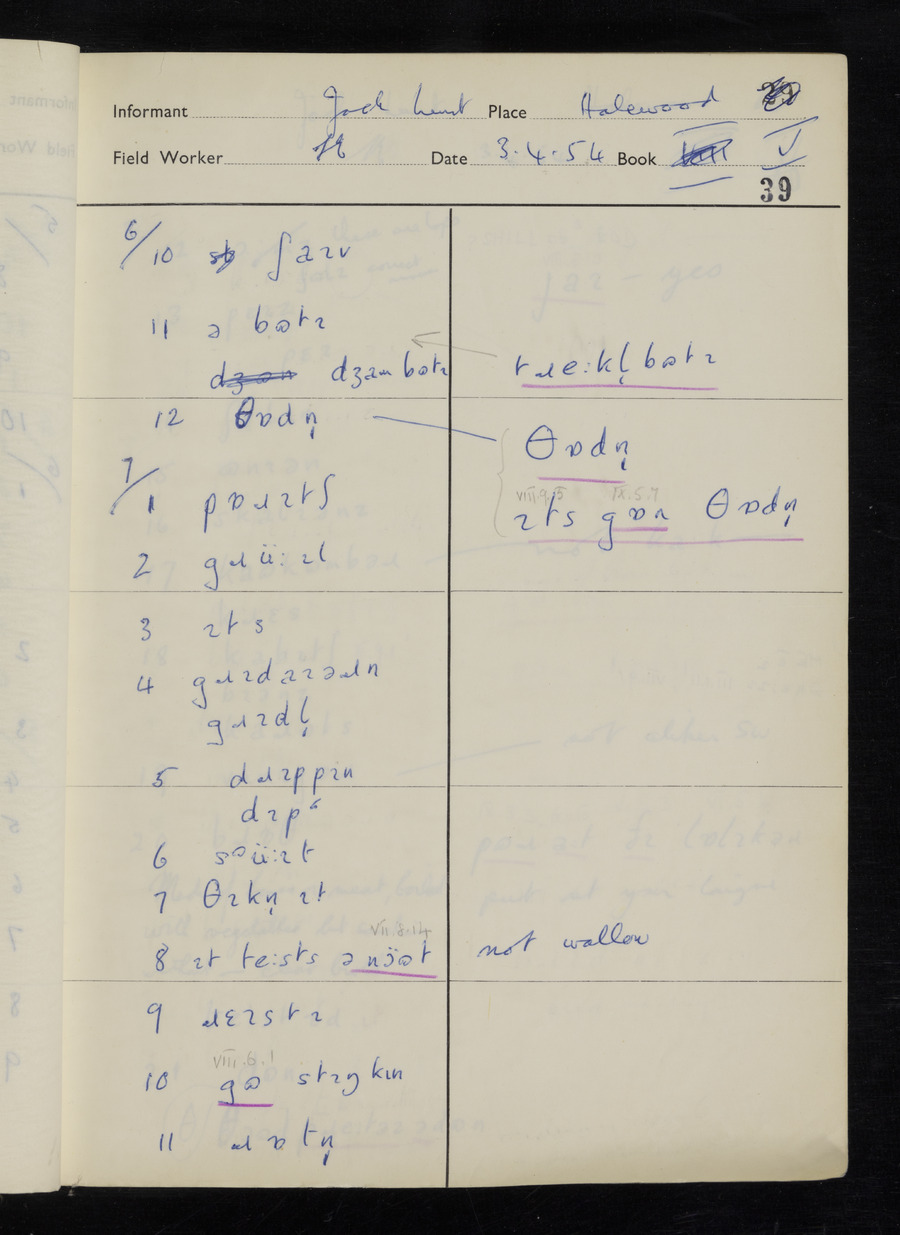 Informant Jack Place Halewood
Field Worker Date 3.4.54 Book V
39
6/
10 ʃaɪv
11 ə bɷtɪ
dʒam bɷtɪ
tɹe:kl̩ bɷtɪ
12 θɒdn̩
θɒdn̩
VIII.9.5 IX.5.7
ɪts gɒn θɒdn̩
7/
1 pɒɹɪtʃ
2 gɹü:ɪl
3 ɪts
gɹɪdl̩
5 dɹɪppɪn
dɪp
6 sᵊü:ɪt
7 θɪkn̩ ɪt
VII.8.14
8 ɪt te:sts ə nɔ̈ət
not wallow
9 ɹɛɪstɪ
VIII.6.1
10 gɷ stɪŋkɪn
11 ɹɒtn̩